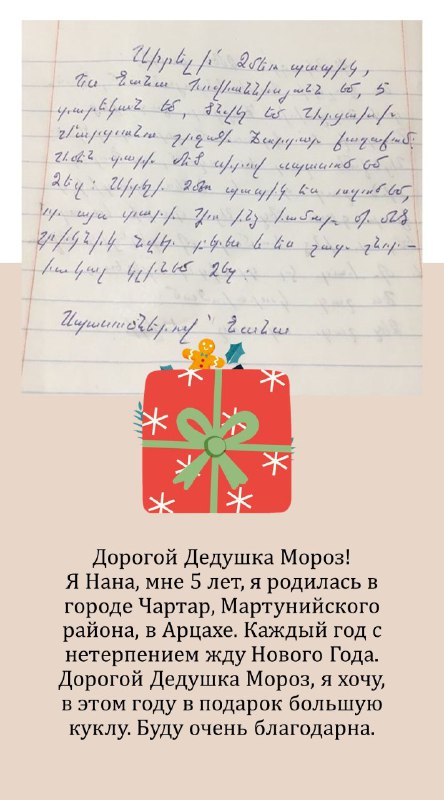 Սիրելի՛ Ձմեռ պապիկ,
Ես Նանա եմ, 5
տարեկան եմ, ծնվել եմ Արցախի
Մարտունու շրջանի Ճարտար քաղաքում:
Ամեն տարի մեծ սիրով սպասում եմ
Ձեզ: Սիրելի Ձմեռ պապիկ ես ուզում եմ,
որ այս տարի Դու ինձ համար մի մեծ
տիկնիկ նվեր բերես և ես շատ շնոր-
հակալ կլինեմ Ձեզ:
Սպասումներով՝ Նանա
Дорогой Дедушка Мороз!
Я Нана, мне 5 лет, я родилась в
городе Чартар, Мартунийского
района, в Арцахе. Каждый год с
нетерпением жду Нового Года.
Дорогой Дедушка Мороз, я хочу,
в этом году в подарок большую
куклу. Буду очень благодарна.